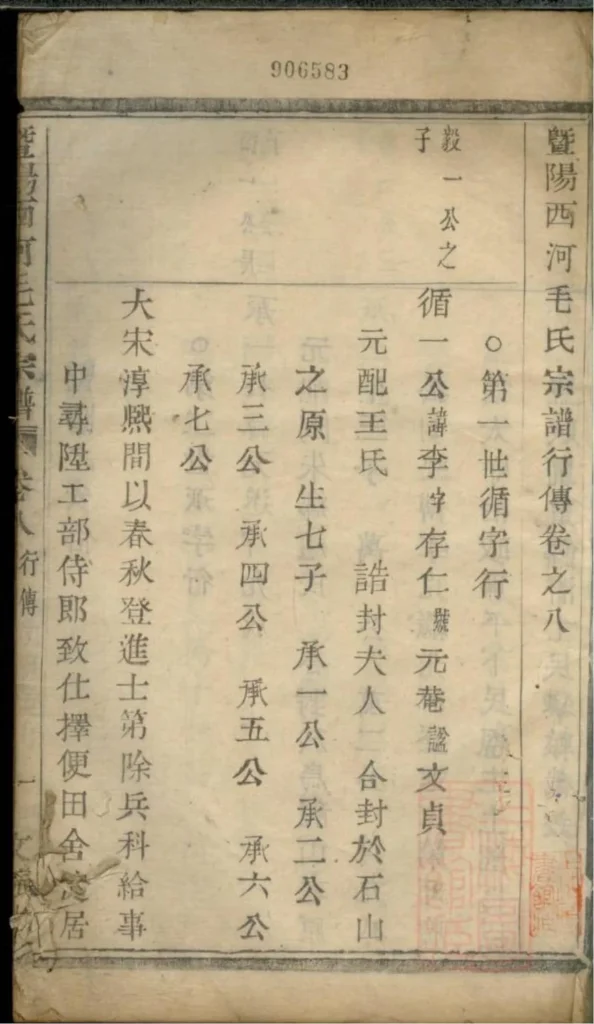 906583
暨陽西河毛氏宗譜行傳卷之八
○第一世循字行
毅一公之
子
循一公諱李字存仁號元菴諡文貞
元配王氏 誥封夫人二合封於石山
之原朱生七子 承一公 承二公
承三公 承四公 承五公 承六公
承七公
大宋淳熈間以春秋登進士第除兵科給事
中尋陞工部侍郎致仕擇便田舍 居
暨陽西河毛氏宗譜 卷八 行傳 一